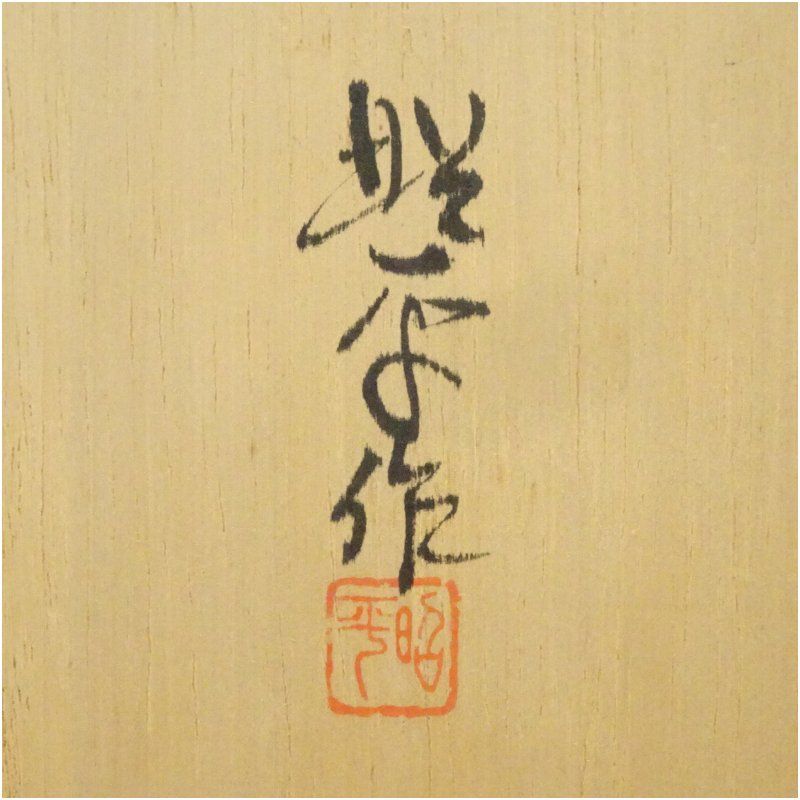 昭平作
昭平